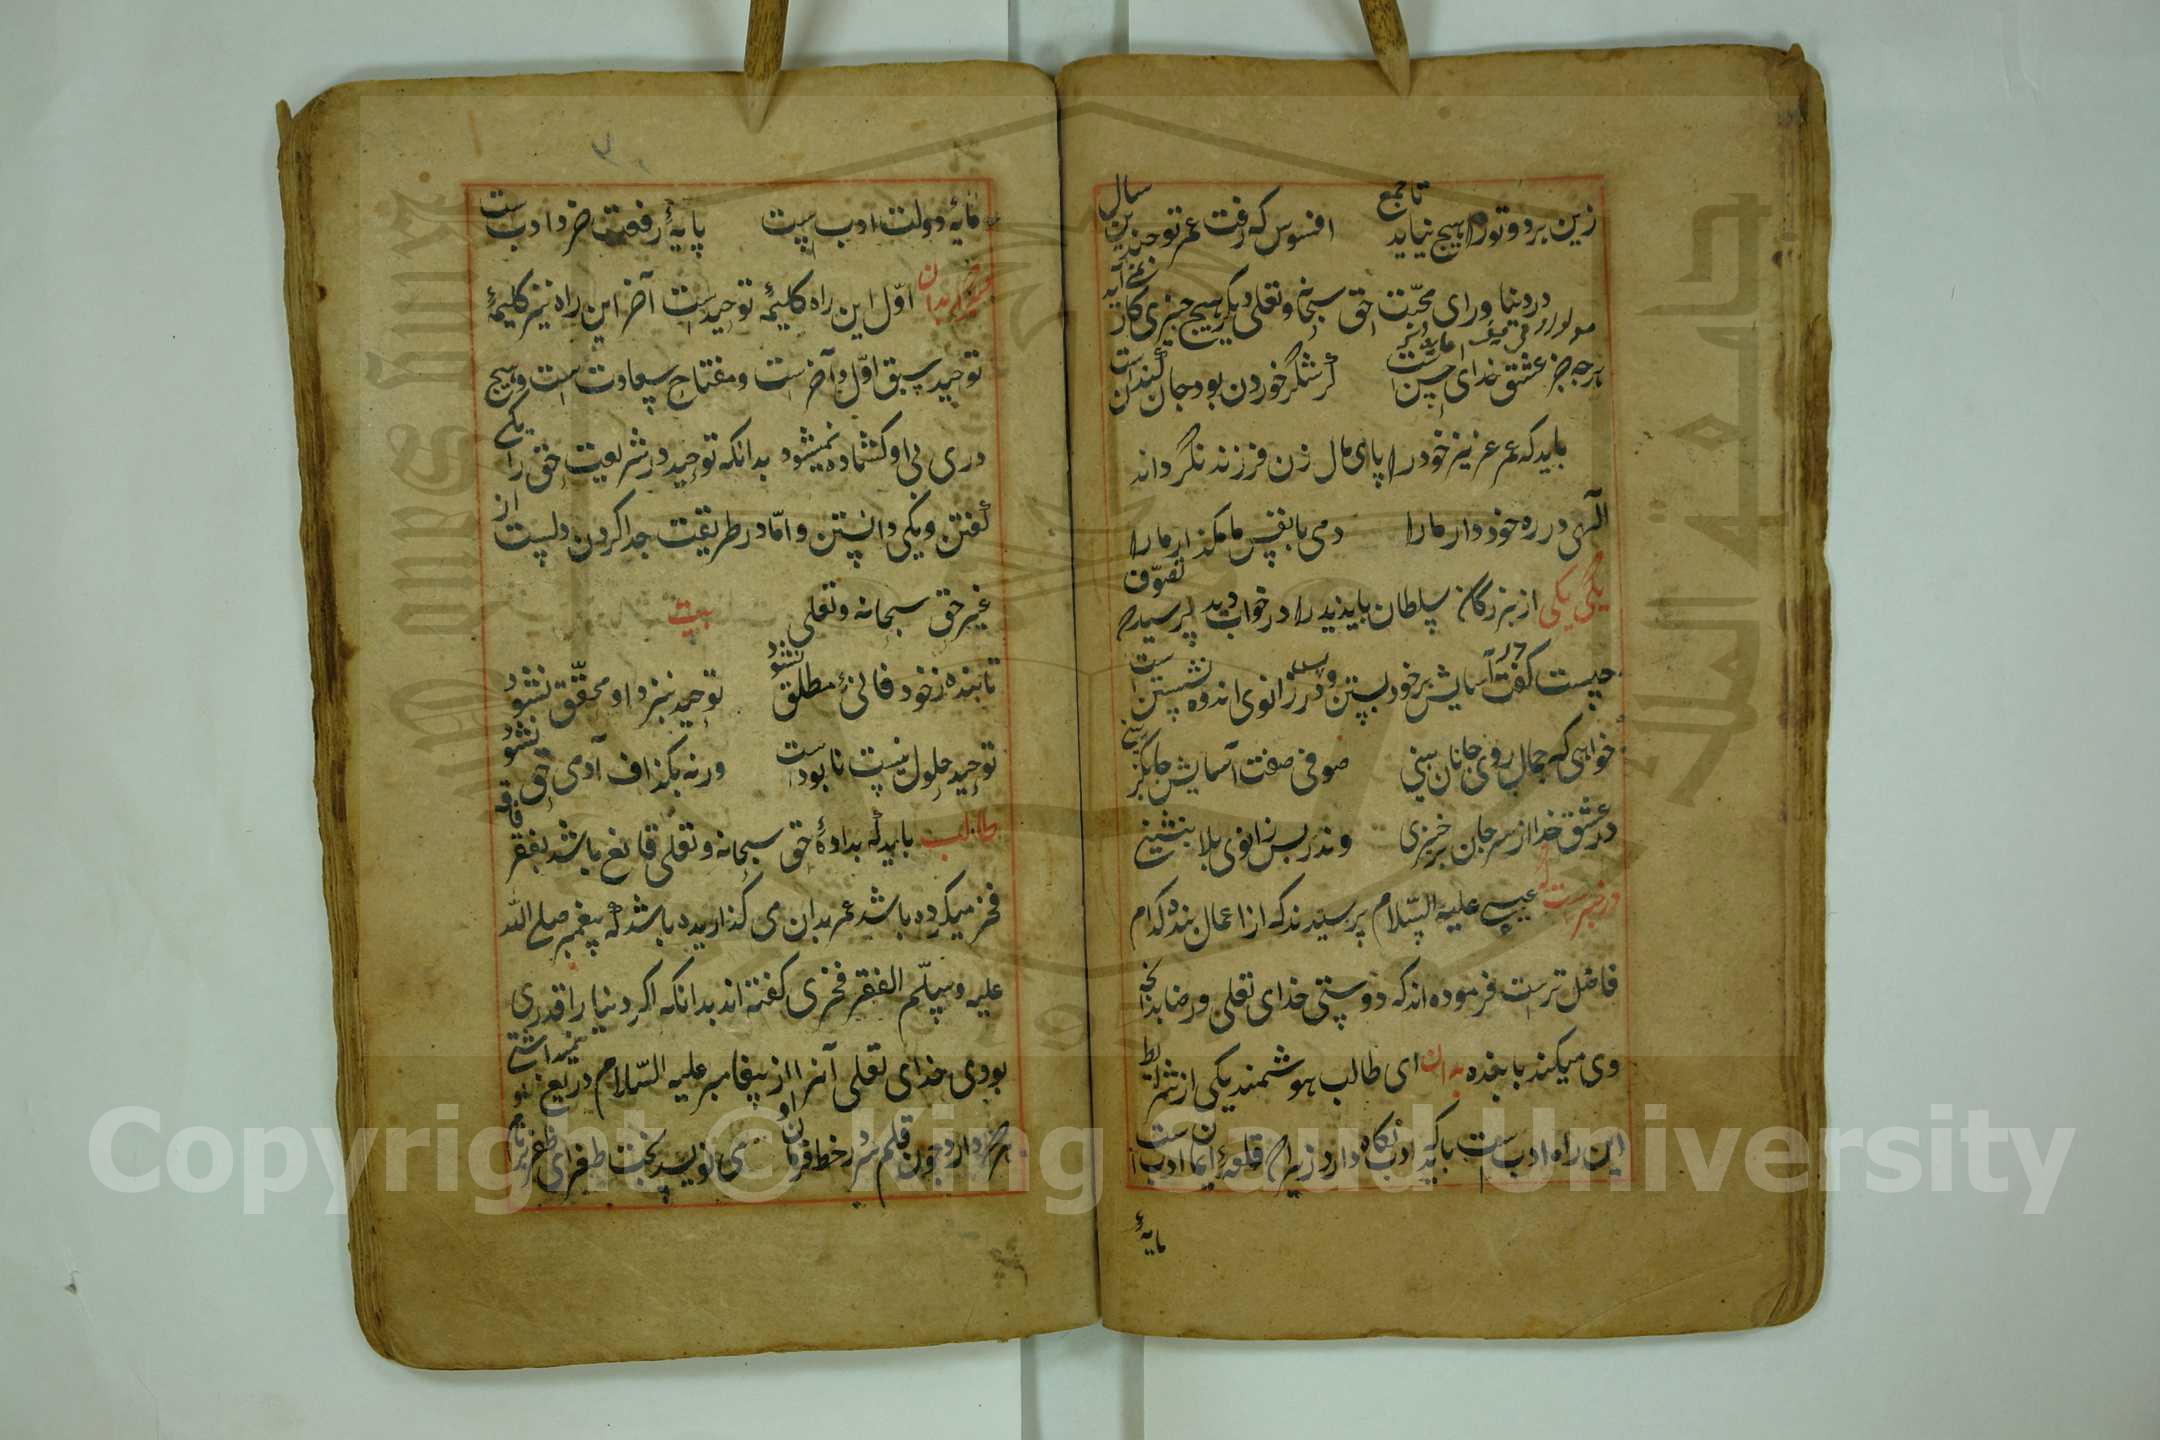 زین بر دو ترا هیچ نیاید تا جمع افسوس که رفت عمر تو چندین سال
در دنیا ورای محبّت حق سبحانه وتعلی دیگر هیچ چیزی کار نمی آید
هرچه جز عشق خدای احسن است گر شکر خوردن بود جان کندن است
باید که عمر عزیز خود را پای مال زن فرزند نگرداند
الهی در ره خود دار ما را دمی با نفس ما مگذار ما را
یکی از بزرگان سلطان بایزید را در خواب دید پرسید که تصوّف
چیست گفت در آسایش بر خود بستن و در پس زانوی اندوه نشستن است
خواهی که جمال روی جانان بینی صوفی صفت آسایش جان نگزینی
در عشق خدا از سر جان برخیزی وندر پس زانوی بلا بنشینی
در خبر است که عیسی علیه السّلام پرسیدند که از اعمال بنده کدام
فاضل تر است فرموده اند که دوستی خدای تعلی و رضا بدانچه
وی میکند با بنده بدان ای طالب هوشمند یکی از شرایط
این راه ادب است باید که ادب نگاه دارد زیرا که قلعهٔ ایمان ادب است
مایهٔ
مایهٔ دولت ادب است پایهٔ رفعت خرد ادب است
اوّل این راه کلیمهٔ توحید است آخر این راه نیز کلیمهٔ
توحید سبق اوّل و آخر است و مفتاح سعادت است و هیچ
دری بی او کشاده نمیشود بدانکه توحید در شریعت حق را یکی
گفتن و یکی دانستن و امّا در طریقت جدا کردن دلست از
غیر حق سبحانه وتعلی بیت
تا بنده ز خود فانیٔ مطلق نشود توحید بنزد او محقّق نشود
توحید حلول نیست نابود است ورنه بگذاف آدمی حق نشود
طالب باید که بدادهٔ حق سبحانه وتعلی قانع باشد بفقر فاقه
فخر میکرده باشد عمر بدان می گذاریده باشد که پیغمبر صلی الله
علیه وسلّم الفقر فخری گفته اند بدانکه اگر دنیا را قدری
بودی خدای تعلی آنرا از پیغامبر علیه السّلام دریغ نمیداشتی
هرکه دارد چون قلم سر در خط فرمان او می نویسد بخت طغرای ظفر بر نام او